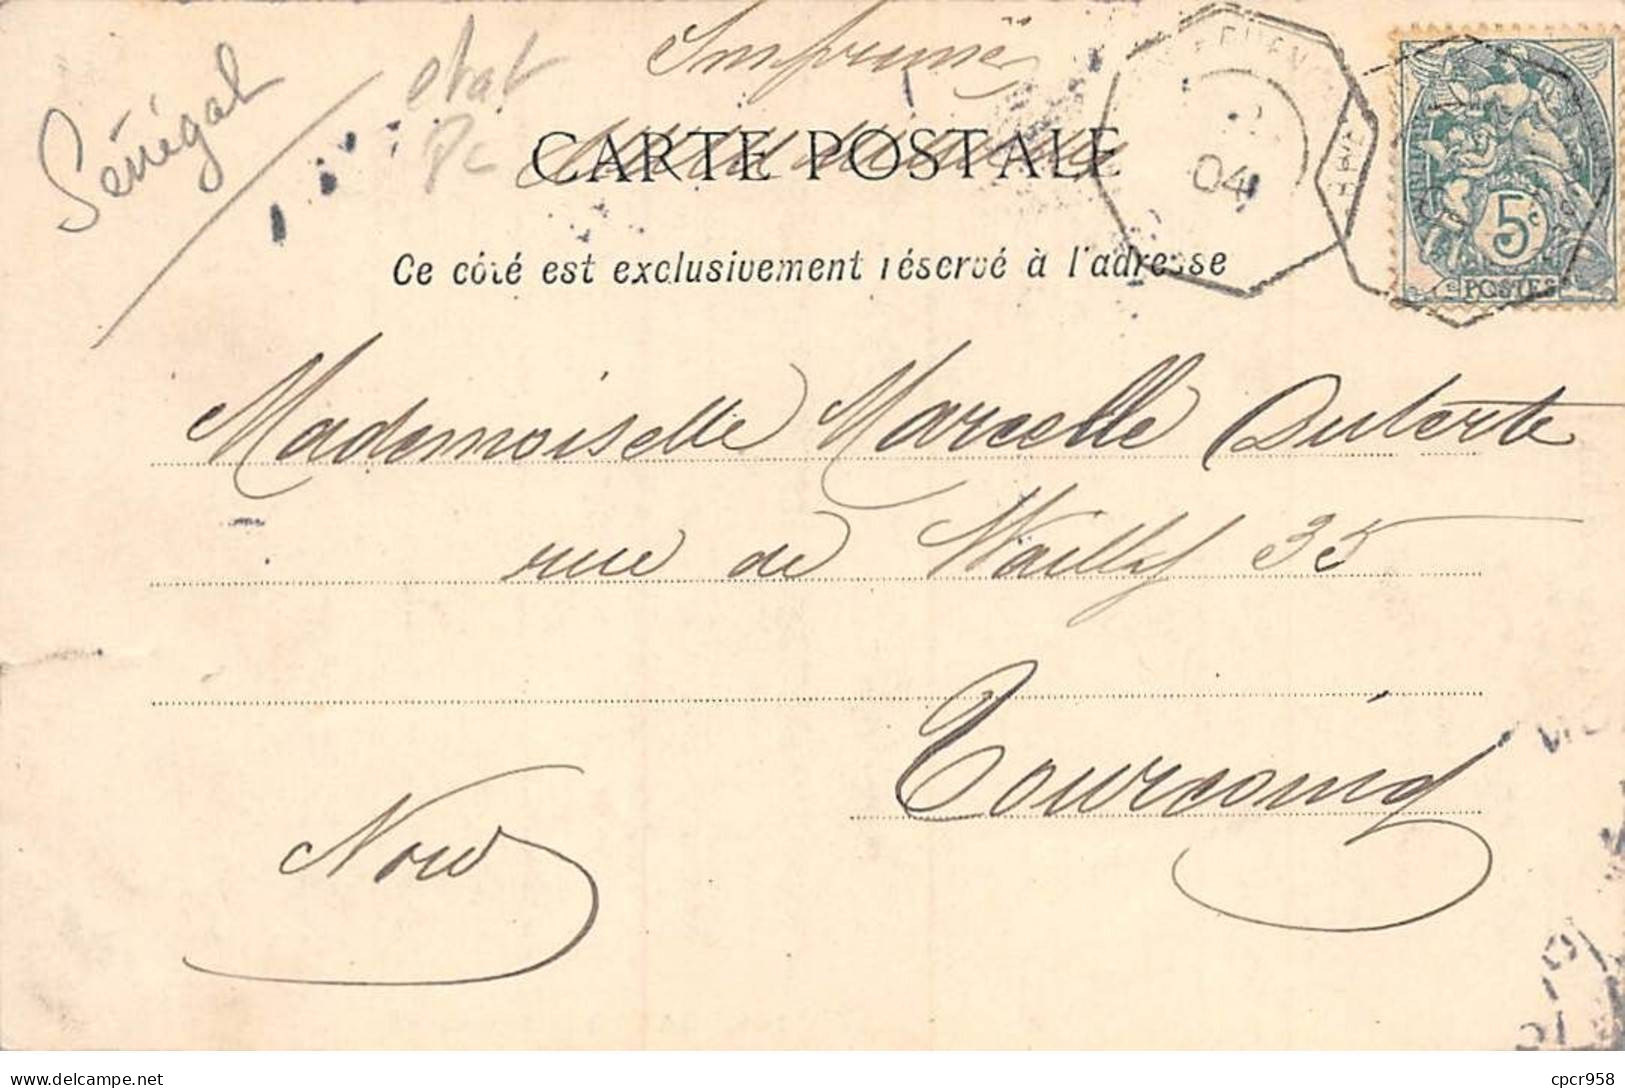 Sénégal
état
Pc
Imprimé
CARTE POSTALE
Ce côté est exclusivement réservé à l'adresse
04
5c
POSTES
Mademoiselle Marcelle Duterte
rue de Wailly 35
Tourcoing
Nord
cpcr958